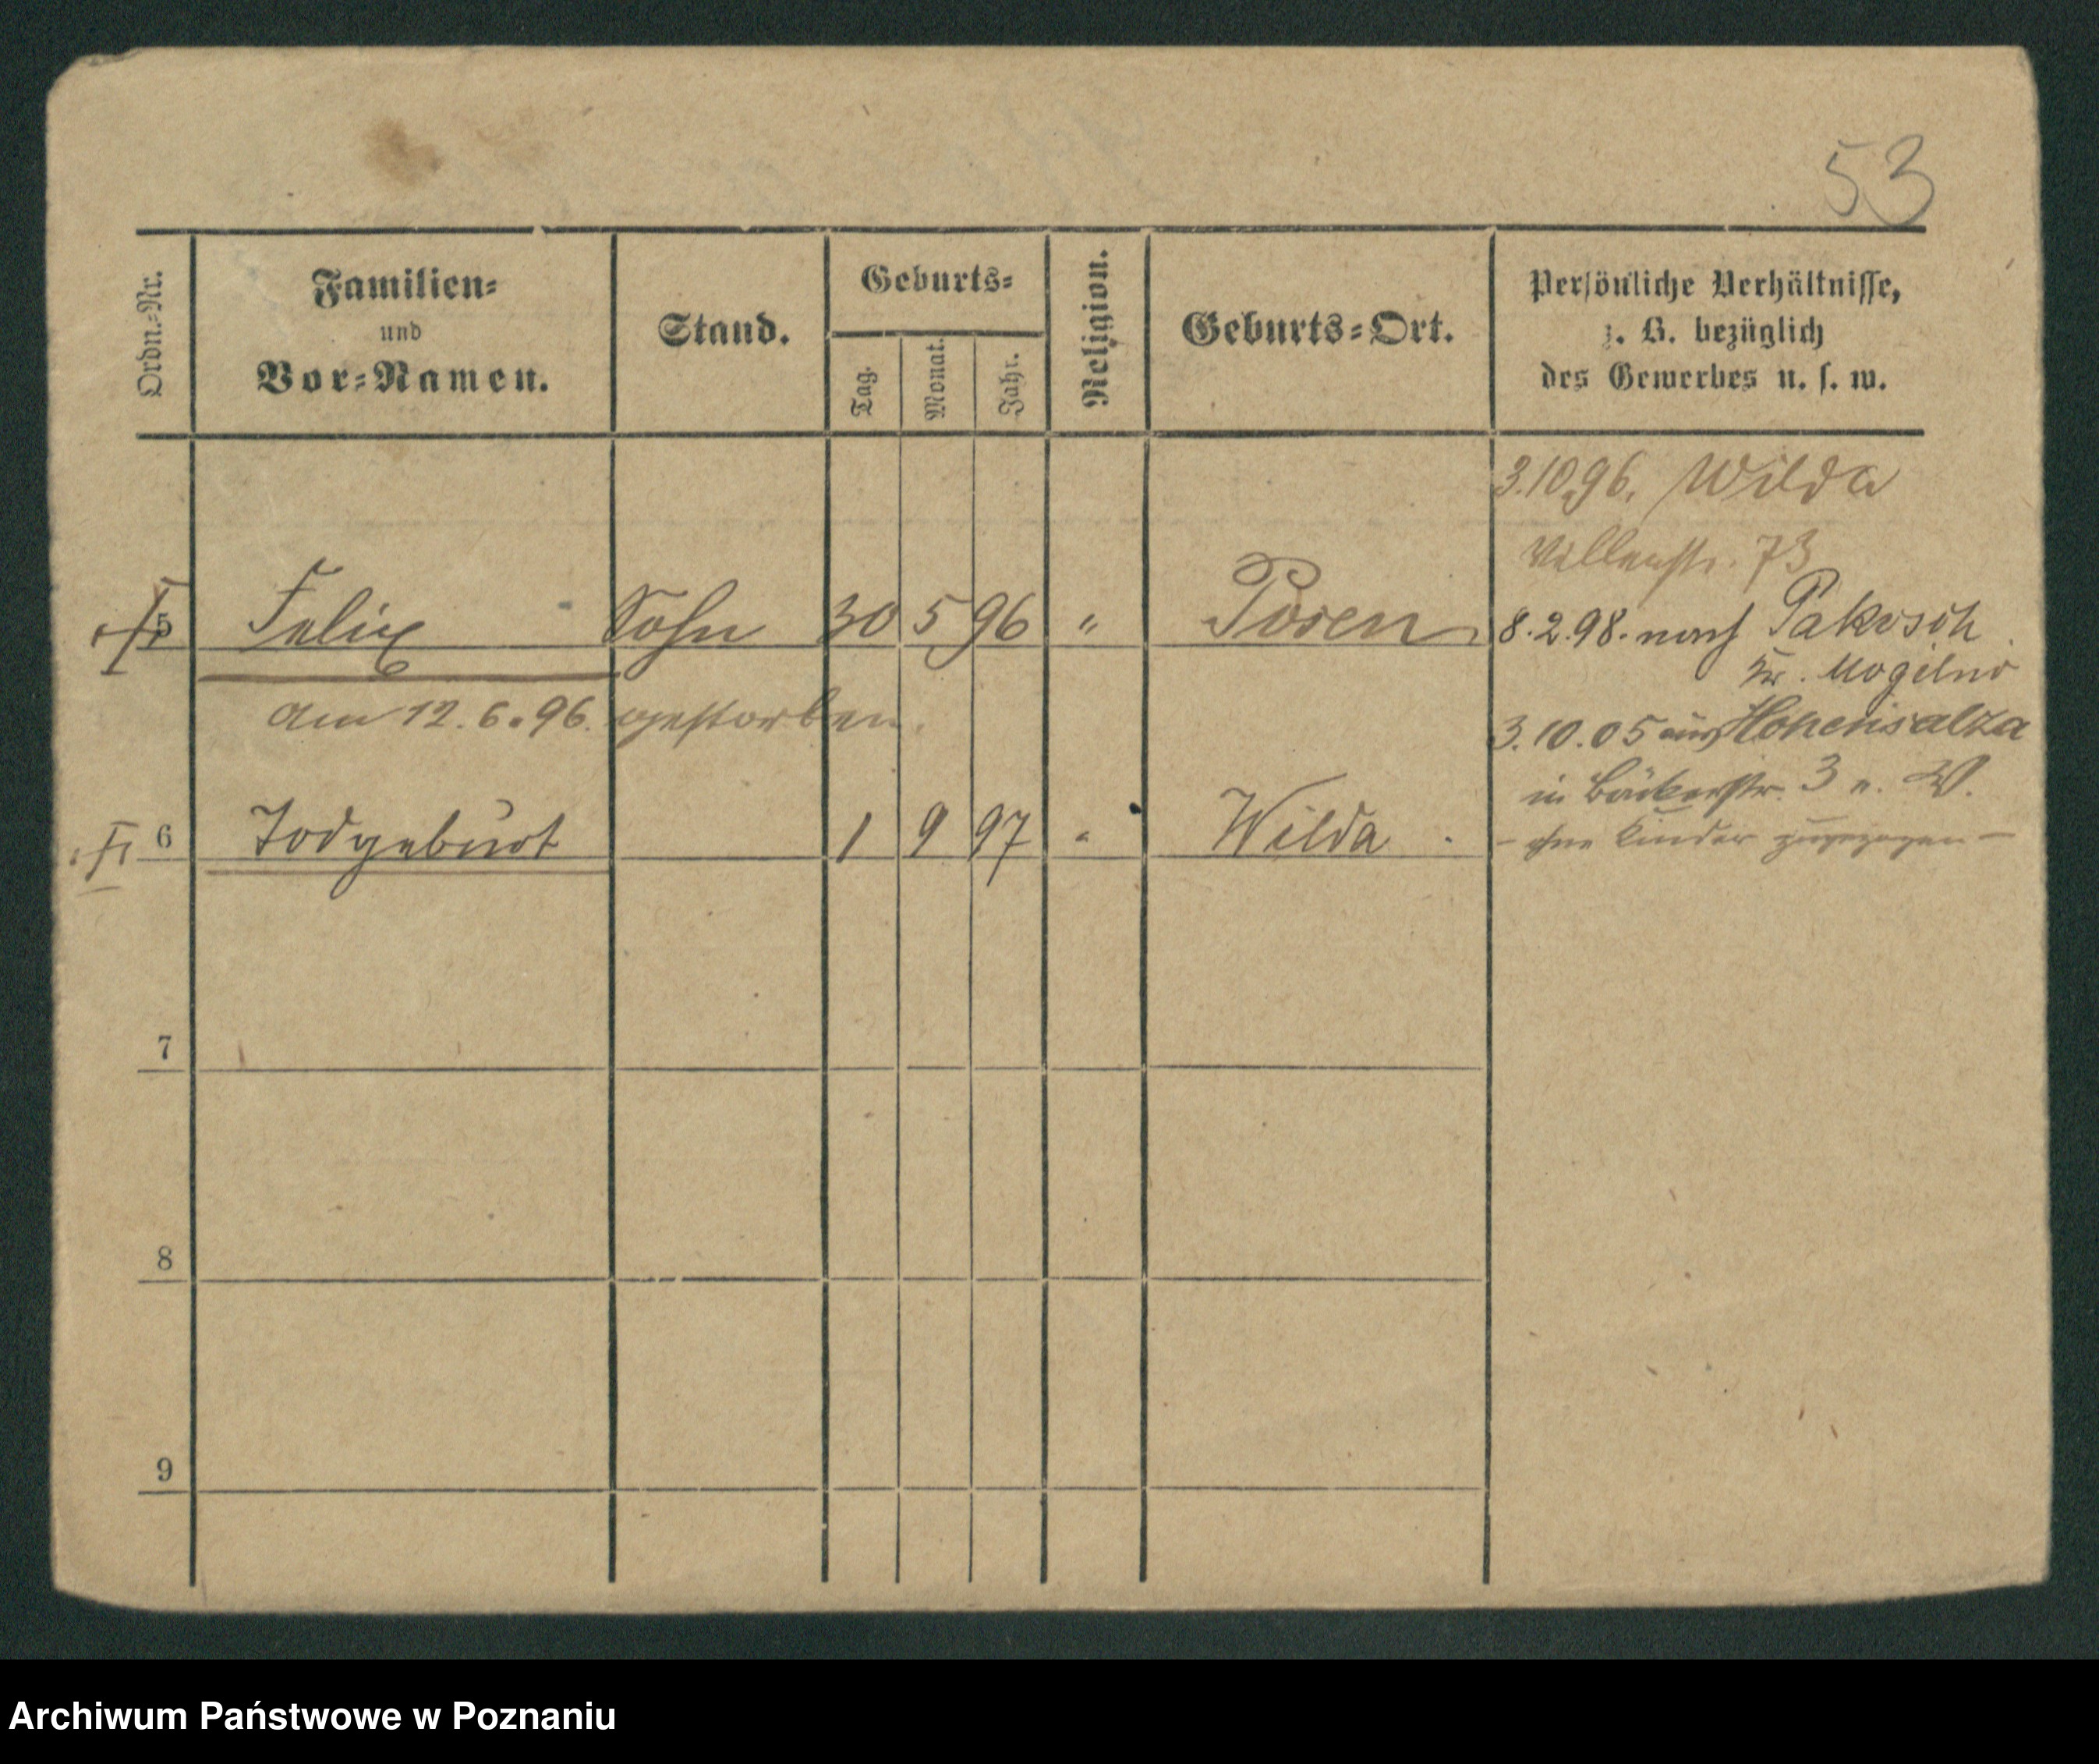 53
Ordn.-Nr.
Familien-
und
Vor-Namen.
Stand.
Geburts-
Tag.
Monat.
Jahr.
Religion.
Geburts-Ort.
Persönliche Verhältnisse,
z. B. bezüglich
des Gewerbes u. s. w.
3.10.96. Wilda
Villenstr. 73
5 Felix Sohn 30 5 96 " Posen
8.2.98. nach Pakosch
Kr. Mogilno
am 12.6.96. gestorben.
3.10.05 aus Hohensalza
in Bäckerstr. 3 n. W.
6 Todgeburt 1 9 97 " Wilda
- ohne Kinder zugezogen -
7
8
9
Archiwum Państwowe w Poznaniu